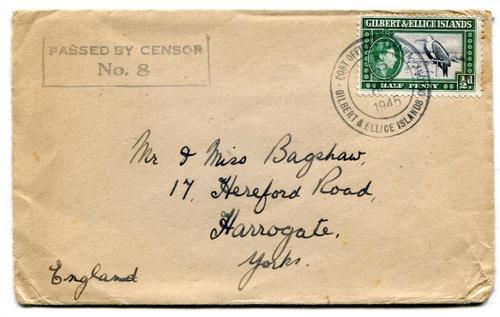 PASSED BY CENSOR
No. 8
GILBERT & ELLICE ISLANDS
½d
HALF PENNY
POST OFFICE
1945
GILBERT & ELLICE ISLANDS
Mr & Miss Bagshaw,
17, Hereford Road,
Harrogate,
Yorks.
England